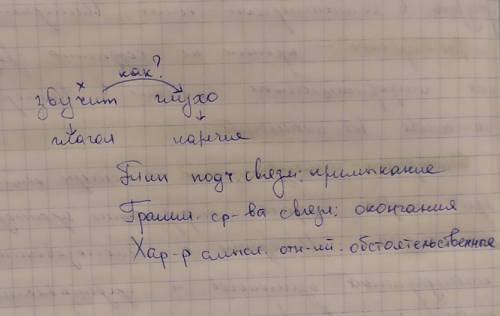 как?
х
звучит глухо
глагол наречие
Тип подч. связи: примыкание
Грамм. ср-ва связи: окончания
Хар-р смысл. отн-ий. обстоятельственные